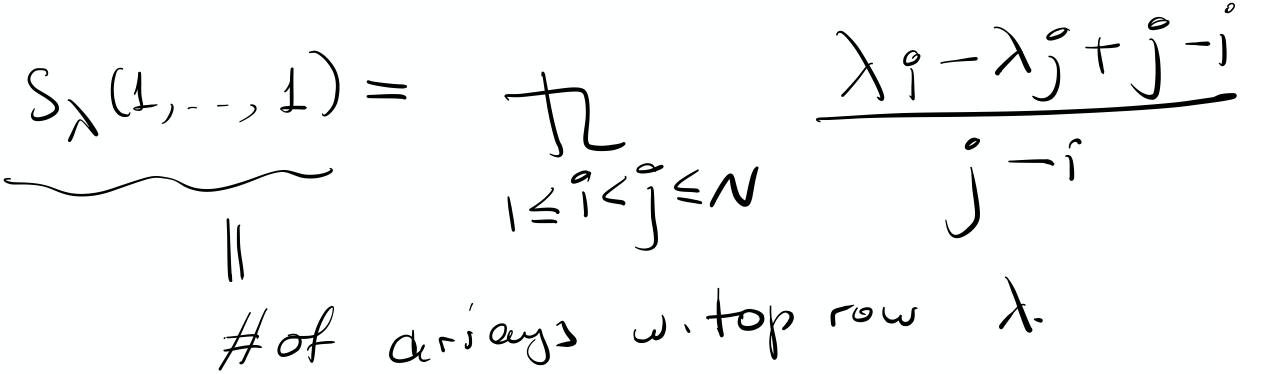 S_λ(1,..,1) = ∏_{1≤i<j≤N} (λi − λj + j − i)/(j − i)
||
# of arrays w. top row λ.